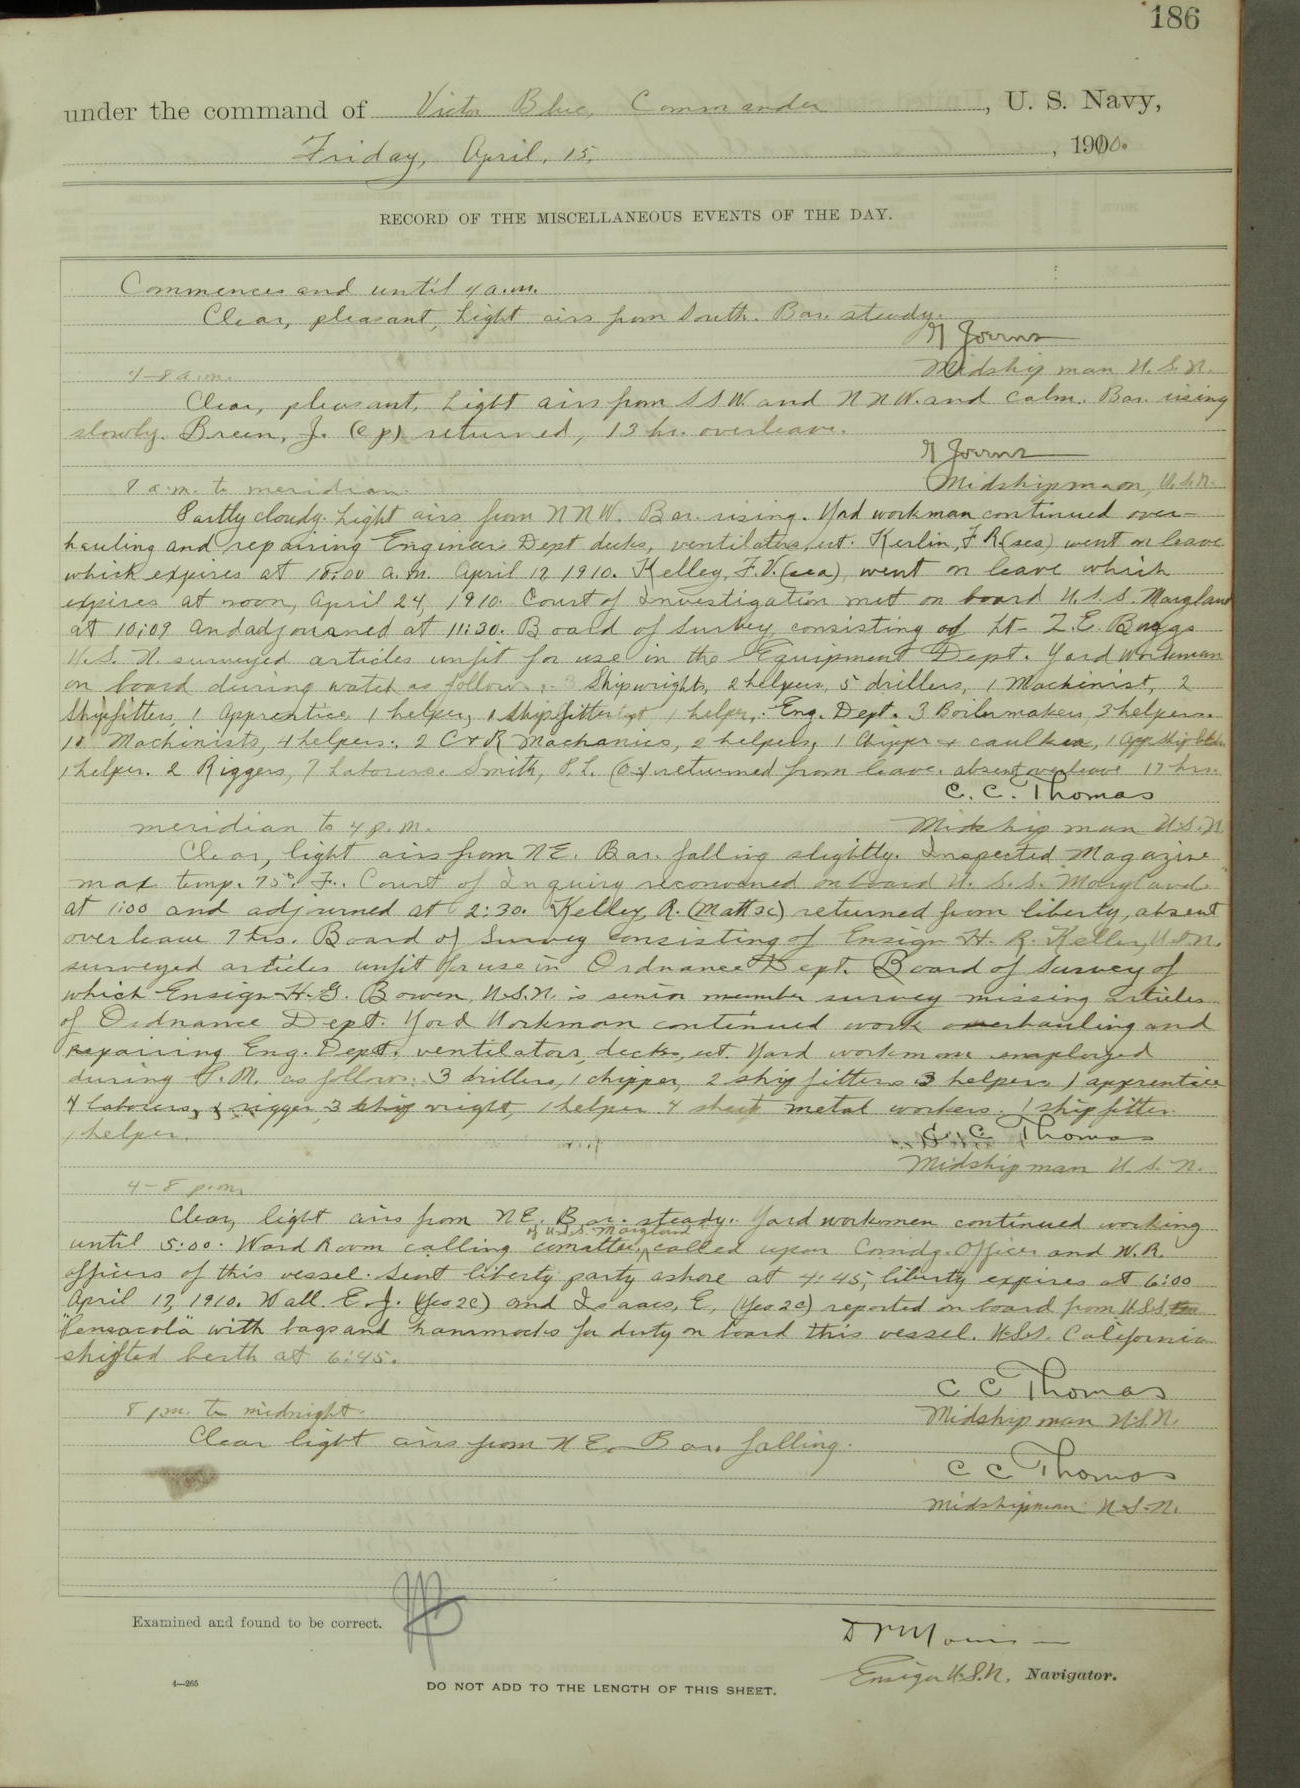 186
under the command of Victor Blue, Commander, U. S. Navy,
Friday, April, 15, 1910.
RECORD OF THE MISCELLANEOUS EVENTS OF THE DAY.
Commences and until 4 a.m.
Clear, pleasant, Light airs from South. Bar. steady.
Midshipman U.S.N.
4–8 a.m.
Clear, pleasant. Light airs from SSW. and NNW. and calm. Bar. rising
slowly. Breen, J. (cp) returned, 13 hr. overleave.
Midshipman, U.S.N.
8 a.m. to meridian.
Partly cloudy. Light airs from NNW. Bar. rising. Yard workman continued over-
hauling and repairing Engineers Dept decks, ventilators, ect. Kerlin, F.R. (sea) went on leave
which expires at 10:00 a.m. April 17 1910. Kelley, F.V. (sea), went on leave which
expires at noon, April 24, 1910. Court of Investigation met on board U.S.S. Maryland
at 10:09 and adjourned at 11:30. Board of Survey consisting of Lt- Z.E. Baggs
U.S.N. surveyed articles unfit for use in the Equipment Dept. Yard workman
on board during watch as follows: 3 Shipwrights, 2 helpers, 5 drillers, 1 Machinist, 2
Shipfitters, 1 Apprentice 1 helper, 1 Shipfitter 1 helper, Eng. Dept. 3 Boilermakers, 3 helpers.
10 Machinists, 4 helpers: 2 C & R Machanics, 2 helpers, 1 Chipper & caulker, 1 App.
1 helper. 2 Riggers, 7 Laborers. Smith, P.L. returned from leave. absent overleave 17 hrs.
C. C. Thomas
Midshipman U.S.N
meridian to 4 p.m.
Clear, light airs from NE. Bar. falling slightly. Inspected Magazine
max temp. 75° F. Court of Inquiry reconvened on board U.S.S. Maryland
at 1:00 and adjourned at 2:30. Kelley, R. (Matt 3c) returned from liberty, absent
overleave 7 hrs. Board of Survey consisting of Ensign H. R. Keller, U.S.N.
surveyed articles unfit for use in Ordnance Dept. Board of Survey of
which Ensign H.G. Bowen, U.S.N. is senior member survey missing articles
of Ordnance Dept. Yard Workman continued work overhauling and
repairing Eng. Dept. ventilators, decks, ect. Yard workman employed
during P.M. as follows: 3 drillers, 1 chipper, 2 shipfitters 3 helpers 1 apprentice
4 laborers, 1 rigger, 3 ship wright, 1 helper 4 sheet metal workers. 1 shipfitter
1 helper.
C. C Thomas
Midshipman U.S.N.
4–8 p.m.
Clear, light airs from NE. Bar. steady. Yard workmen continued working
of U.S.S. Maryland
until 5:00. Ward Room calling comattee, called upon Comdg. Officer and W.R.
officers of this vessel. Sent liberty party ashore at 4:45, liberty expires at 6:00
April 17, 1910. Wall E.J. (Yeo 2c) and Isaacs, E, (Yeo 2c) reported on board from U.S.S.
"Pensacola" with bags and hammocks for duty on board this vessel. U.S.S. California
shifted berth at 6:45.
C C Thomas
Midshipman U.S.N.
8 p.m. to midnight.
Clear light airs from NE. Bar. falling.
C C Thomas
Midshipman U.S.N.
Examined and found to be correct.
Ensign U.S.N. Navigator.
4—265
DO NOT ADD TO THE LENGTH OF THIS SHEET.